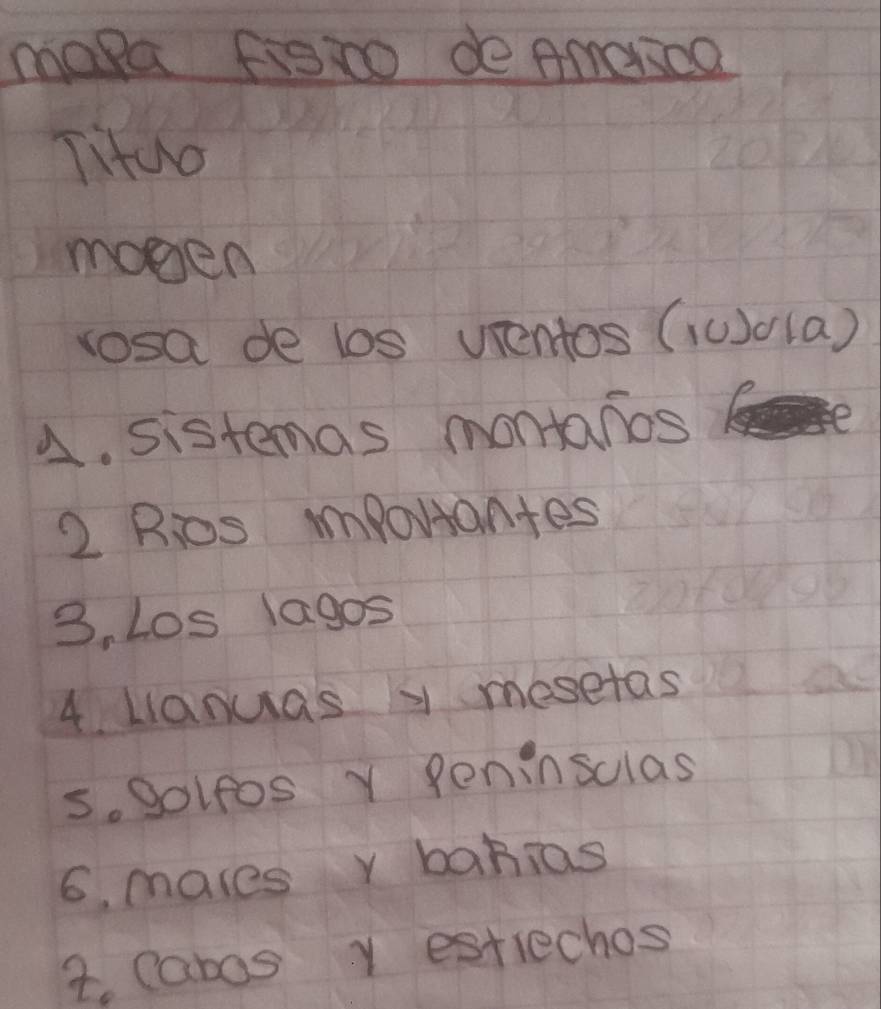 mapa fisico de America
Titulo
mogen
rosa de los vientos
1. sistemas montaños
2 Rios importantes
3. Los lagos
4. Llanuas y mesetas
5. golfos y peninsulas
6. mares y bahias
7. cabos y estrechos